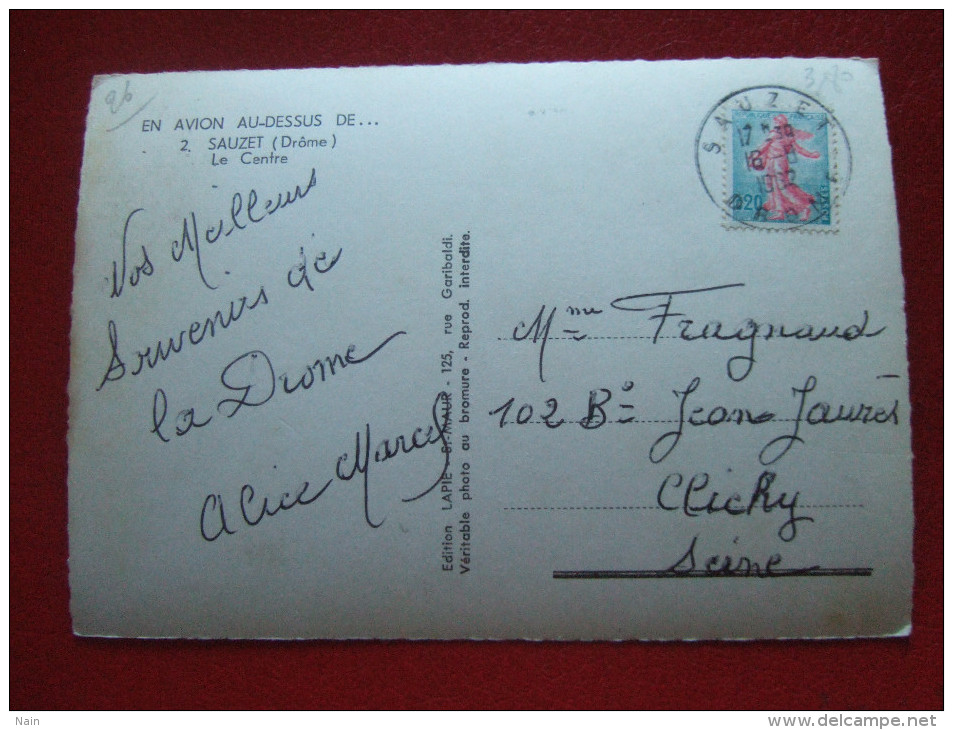 96
EN AVION AU-DESSUS DE...
2. SAUZET (Drôme)
Le Centre
Vos Meilleurs
Souvenirs de
la Drome
Alice Marcel
Edition LAPIE - St-MAUR - 125, rue Garibaldi.
Véritable photo au bromure - Reprod. interdite.
SAUZET
17 H 30
18
DROME
0,20
Mme Fragnaud
102 Bd Jean Jaurès
Clichy
Seine
Nain
delcampe.net